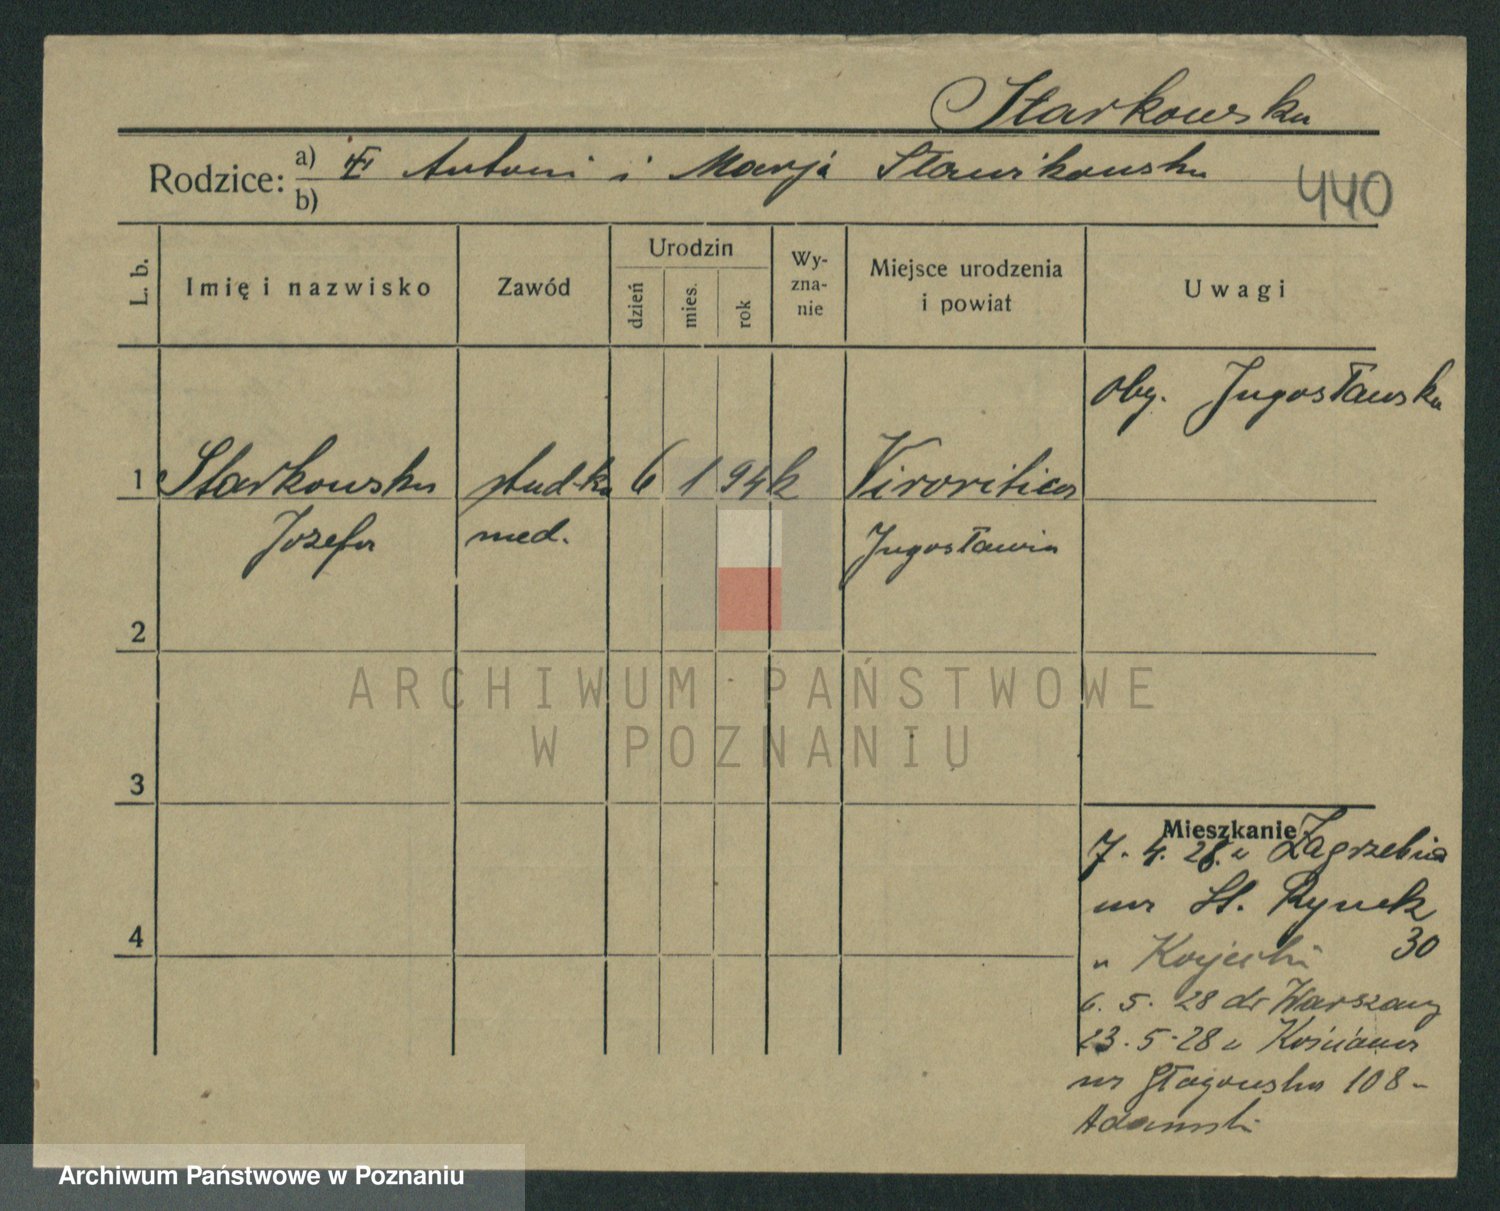 Starkowska
Rodzice: a) Antoni i Marja Sławikowska
b)
440
L. b.
Imię i nazwisko
Zawód
Urodzin
dzień
mies.
rok
Wy-
zna-
nie
Miejsce urodzenia
i powiat
Uwagi
oby. Jugosławska
1 Starkowska stud-ka 6 1 94 k Viroritica
Jozefa med. Jugosławia
2
3
4
ARCHIWUM PAŃSTWOWE
W POZNANIU
Mieszkanie
7. 4. 28. z Zagrzebia
na St. Rynek
30
6. 5. 28 do Warszawy
23. 5. 28 z Kościana
na Głogowska 108
Adamski
Archiwum Państwowe w Poznaniu